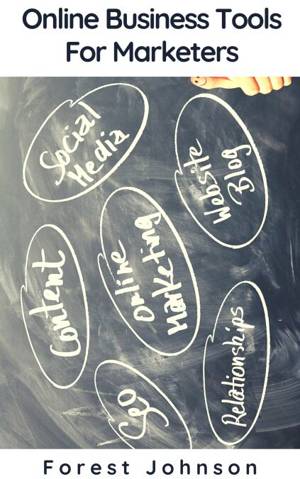 Online Business Tools
For Marketers
Social
Media
Website
Blog
Content
Online
Marketing
Relationships
Seo
Forest Johnson